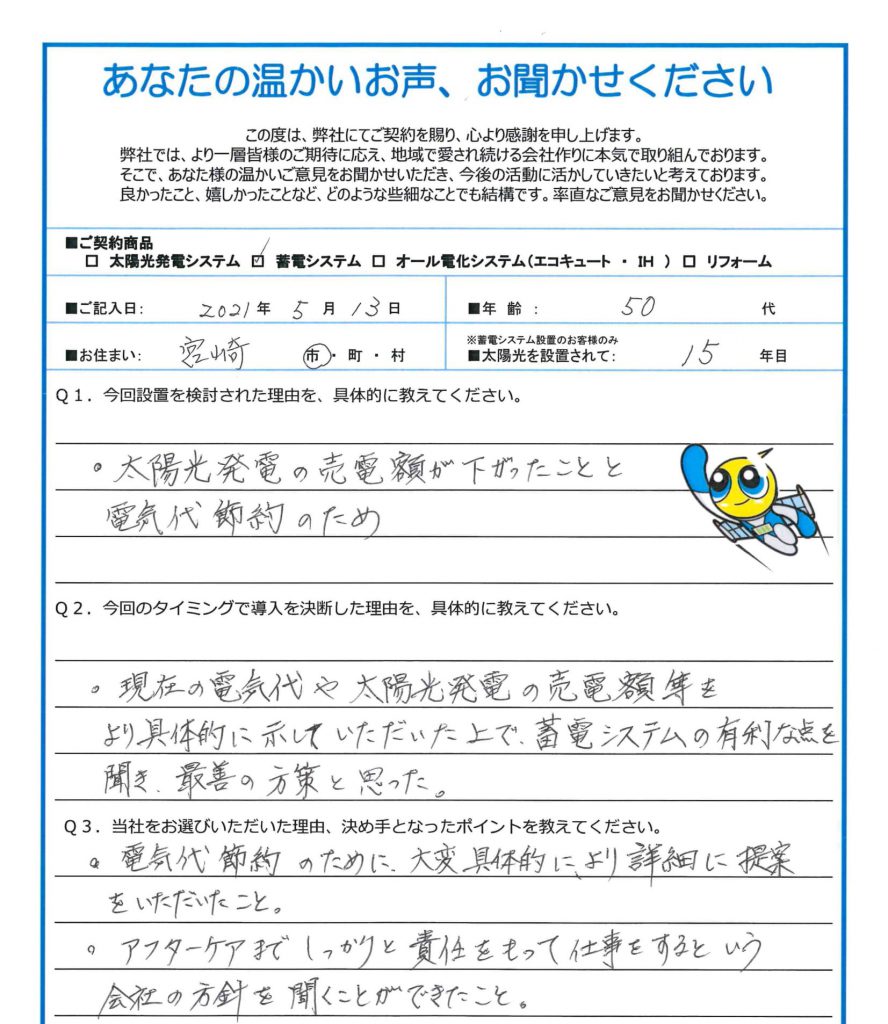 あなたの温かいお声、お聞かせください
この度は、弊社にてご契約を賜り、心より感謝を申し上げます。
弊社では、より一層皆様のご期待に応え、地域で愛され続ける会社作りに本気で取り組んでおります。
そこで、あなた様の温かいご意見をお聞かせいただき、今後の活動に活かしていきたいと考えております。
良かったこと、嬉しかったことなど、どのような些細なことでも結構です。率直なご意見をお聞かせください。
■ご契約商品
□ 太陽光発電システム ☑ 蓄電システム □ オール電化システム(エコキュート ・ IH ) □ リフォーム
■ご記入日: 2021年 5月 13日 ■年 齢 : 50 代
※蓄電システム設置のお客様のみ
■お住まい: 宮崎 市・町・村 ■太陽光を設置されて: 15 年目
Q1. 今回設置を検討された理由を、具体的に教えてください。
。太陽光発電の売電額が下がったことと
電気代節約のため
Q2. 今回のタイミングで導入を決断した理由を、具体的に教えてください。
。現在の電気代や太陽光発電の売電額等を
より具体的に示していただいた上で、蓄電システムの有利な点を
聞き、最善の方策と思った。
Q3. 当社をお選びいただいた理由、決め手となったポイントを教えてください。
。電気代節約のために、大変具体的に、より詳細に提案
をいただいたこと。
。アフターケアまでしっかりと責任をもって仕事をするという
会社の方針を聞くことができたこと。